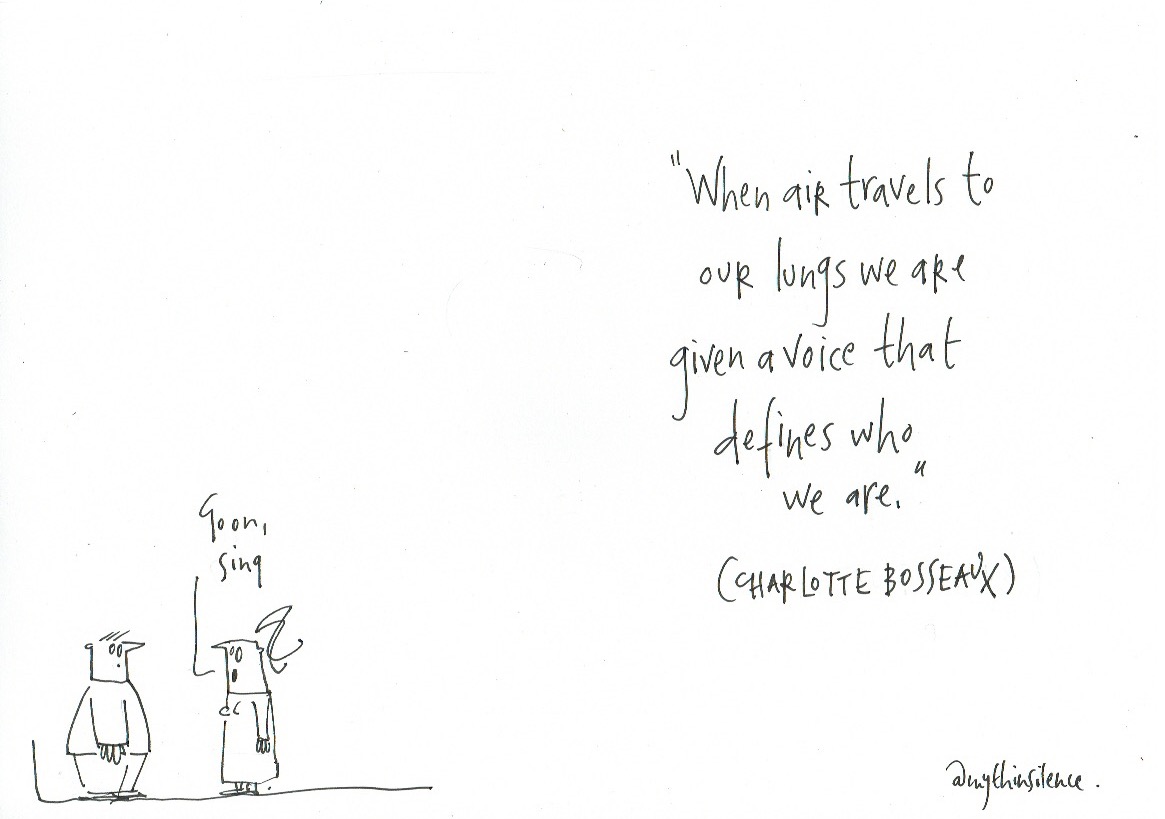 "When air travels to
our lungs we are
given a voice that
defines who
we are."
(CHARLOTTE BOSSEAUX)
Go on,
sing
@mythinsilence.